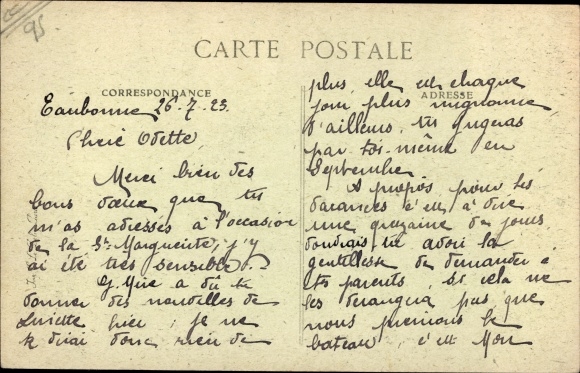 95
CARTE POSTALE
CORRESPONDANCE
Eaubonne 26-7-23
Cheré Odette,
Merci bien des
bons vœux que tu
m'as adressés à l'occasion
de la Ste Marguerite, j'y
ai été très sensible.
a dû te
donner des nouvelles de
Lucette hier ; je ne
te dirai donc rien de
ADRESSE
plus, elle est chaque
jour plus mignonne,
d'ailleurs tu jugeras
par toi-même en
Septembre.
A propos pour tes
vacances c'est à dire
une quinzaine de jours
voudrais tu avoir la
gentillesse de demander à
tes parents, si cela ne
les derangera pas que
nous prenions le
bateau, c'est Mon